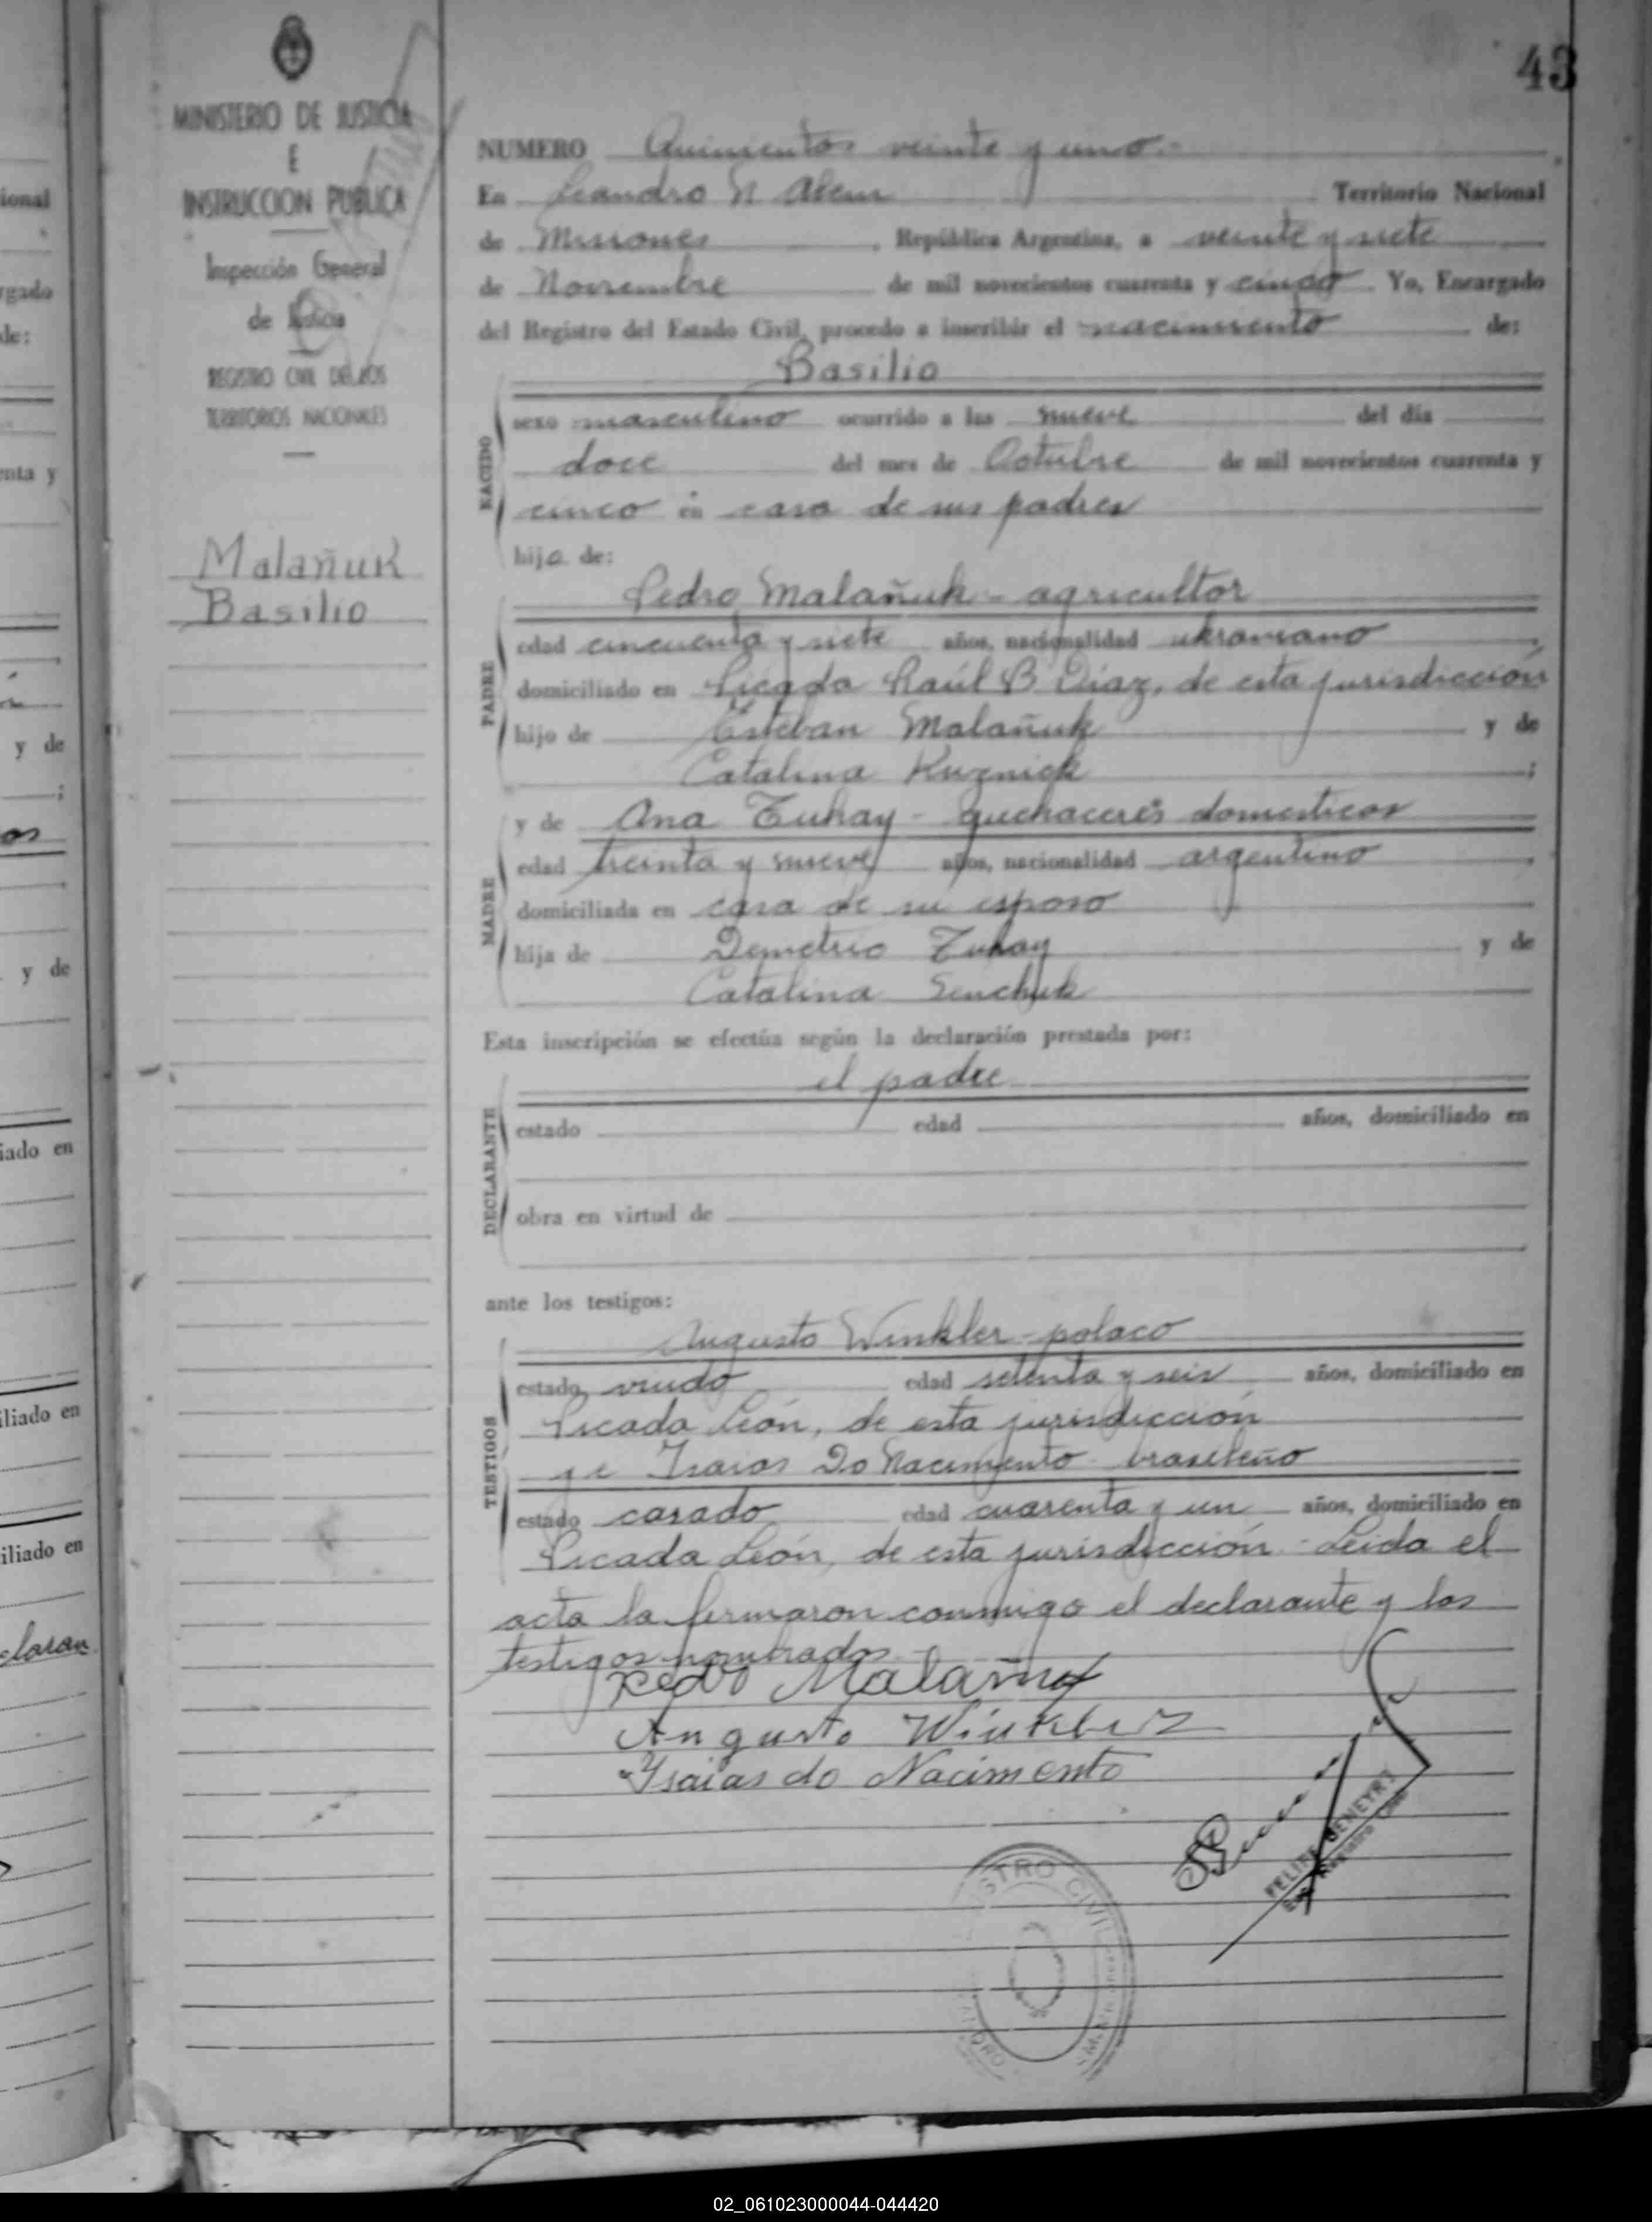 43
MINISTERIO DE JUSTICIA
E
INSTRUCCION PUBLICA
Inspección General
de Justicia
REGISTRO CIVIL DE LOS
TERRITORIOS NACIONALES
Malañuk
Basilio
NUMERO Quinientos veinte y uno.-
En Leandro N Alem Territorio Nacional
de Misiones, República Argentina, a veinte y siete
de Noviembre de mil novecientos cuarenta y cinco. Yo, Encargado
del Registro del Estado Civil, procedo a inscribir el nacimiento de:
Basilio
NACIDO
sexo masculino ocurrido a las nueve del día
doce del mes de Octubre de mil novecientos cuarenta y
cinco en casa de sus padres
hijo de:
Pedro Malañuk - agricultor
PADRE
edad cincuenta y siete años, nacionalidad ukraniano,
domiciliado en Picada Raúl B Díaz, de esta jurisdicción
hijo de Esteban Malañuk y de
Catalina Kuzniek;
y de Ana Tukay - quehaceres domesticos
MADRE
edad treinta y nueve años, nacionalidad argentino,
domiciliada en casa de su esposo
hija de Demetrio Tukay y de
Catalina Senchuk
Esta inscripción se efectúa según la declaración prestada por:
el padre
DECLARANTE
estado edad años, domiciliado en
obra en virtud de
ante los testigos:
Augusto Winkler - polaco
TESTIGOS
estado viudo edad setenta y seis años, domiciliado en
Picada León, de esta jurisdicción
y e Isaias Do Nacimento - brasileño
estado casado edad cuarenta y un años, domiciliado en
Picada León, de esta jurisdicción - Leida el
acta la firmaron conmigo el declarante y los
testigos nombrados
Pedro Malañuk
Augusto Winkler
Isaias do Nacimento
FELIPE BENEYRI
Registro Civil
REGISTRO CIVIL
02_061023000044-044420